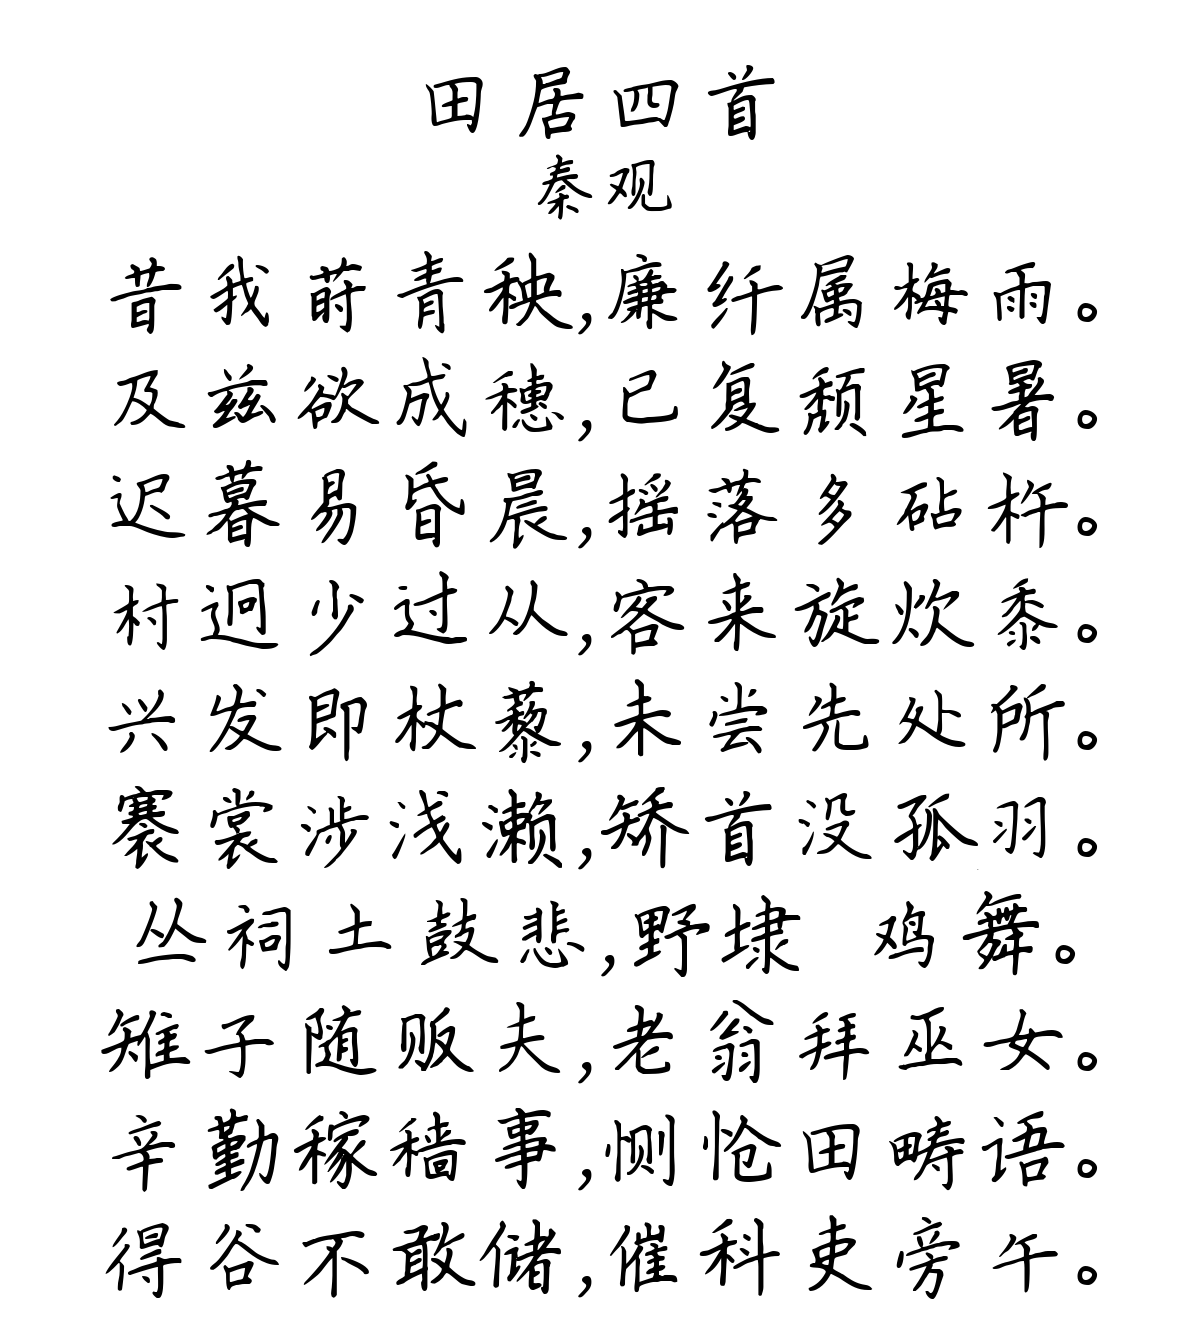 田居四首
秦观
昔我莳青秧,廉纤属梅雨。
及兹欲成穗,已复颓星暑。
迟暮易昏晨,摇落多砧杵。
村迥少过从,客来旋炊黍。
兴发即杖藜,未尝先处所。
褰裳涉浅濑,矫首没孤羽。
丛祠土鼓悲,野埭 鸡舞。
雉子随贩夫,老翁拜巫女。
辛勤稼穑事,恻怆田畴语。
得谷不敢储,催科吏旁午。